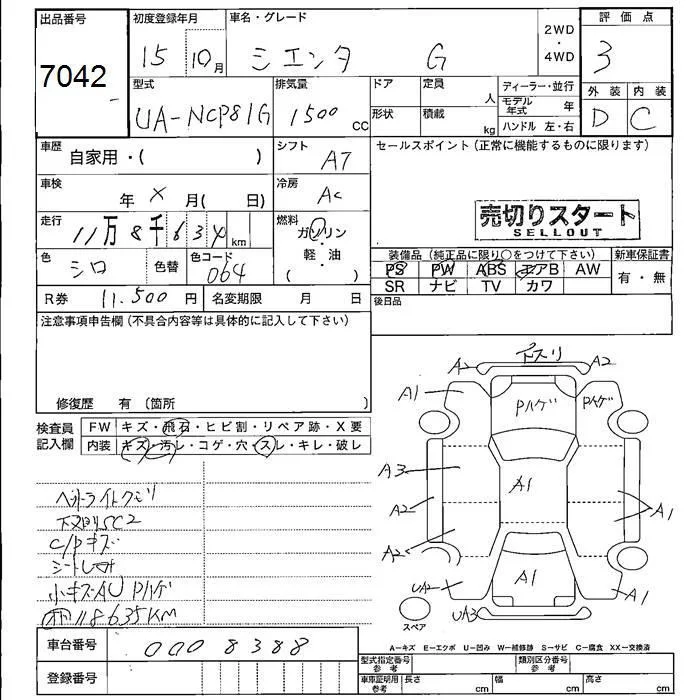 出品番号 初度登録年月 車名・グレード 評価点
7042 15 10月 シエンタ G 2WD・4WD 3
型式 排気量 ドア 定員 人 ディーラー・並行 外装 内装
UA-NCP81G 1500 CC 形状 積載 kg モデル年式 年 D C
ハンドル 左・右
車歴 自家用・( ) シフト AT セールスポイント(正常に機能するものに限ります)
車検 年 X 月( 日) 冷房 AC
走行 11万8千634 km 燃料 ガソリン・軽・油 ( )
売切りスタート
SELLOUT
色 シロ 色替 色コード 064
装備品(純正品に限り○をつけて下さい) 新車保証書
PS PW ABS エアB AW 有・無
SR ナビ TV カワ
R券 11.500 円 名変期限 月 日 後日品
注意事項申告欄(不具合内容等は具体的に記入して下さい)
修復歴 有(箇所 )
検査員記入欄 FW キズ・飛石・ヒビ割・リペア跡・X要
内装 キズ・汚レ・コゲ・穴・スレ・キレ・破レ
ヘッドライトクモリ
下廻りSC2
C/Pキズ
シートしみ
小キズAU Pハゲ
118635KM
A2 下スリ A2
A1 Pハゲ Pハゲ
A3 A1
A2 A1
A2
UA2 A1 A1
UA3
スペア
A-キズ E-エクボ U-凹み W-補修跡 S-サビ C-腐食 XX-交換済
車台番号 0008388
登録番号
型式指定番号 参考 類別区分番号 参考
車庫証明用 参考 長さ cm 幅 cm 高さ cm